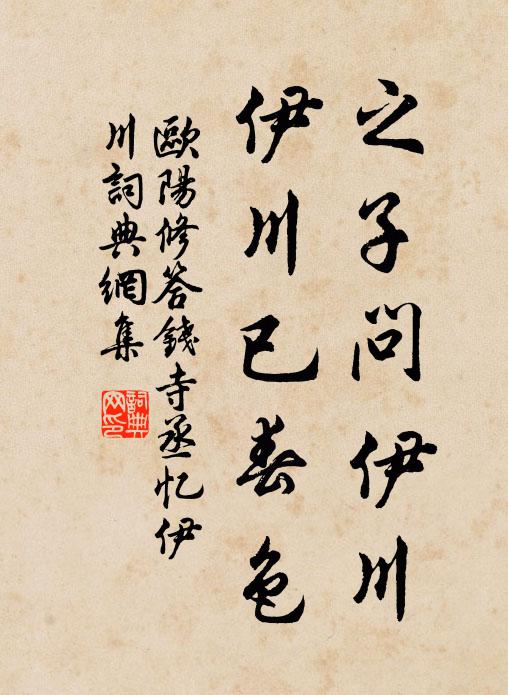 之子問伊川
伊川已春色
歐陽修答錢寺丞憶伊
川詞典網集
詞典
网印